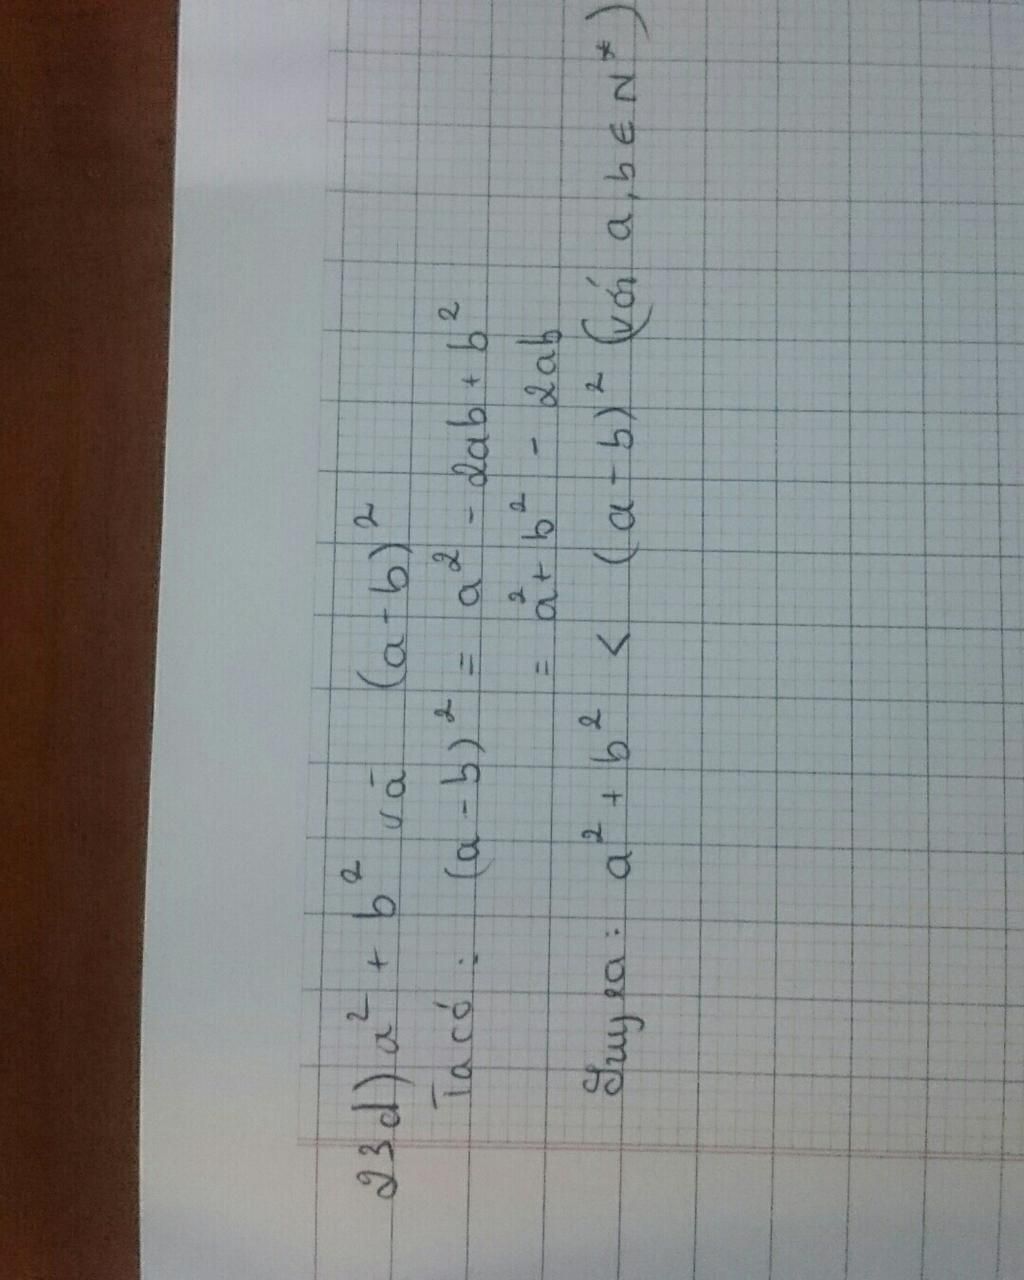 23d) a² + b² và (a - b)²
Ta có : (a - b)² = a² - 2ab + b²
= a² + b² - 2ab
Suy ra : a² + b² < (a - b)² (với a, b ∈ N*)